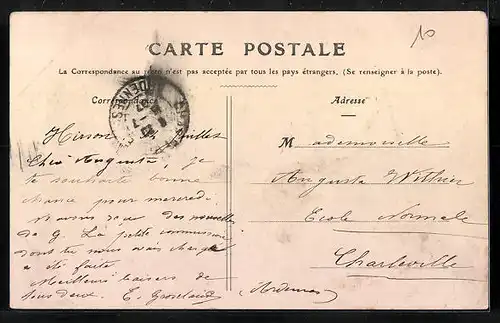 10
CARTE POSTALE
La Correspondance au recto n'est pas acceptée par tous les pays étrangers. (Se renseigner à la poste).
Correspondance
Adresse
Hirson
Chère Augusta, je
te souhaite bonne
chance pour mercredi.
nouvelles
de g. La petite commission
dont tu nous avais chargé
a été faite.
Meilleurs baisers de
tous deux. E.
Mademoiselle
Augusta
Ecole Normale
Charleville
(Ardennes)